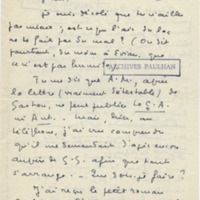 je suis désolé que tu n'ailles
pas mieux ; est-ce que l'air du lac
ne te fait pas du mal ? (On dit
pourtant, du moins à Evian, que
ce n'est pas humide.)
ARCHIVES PAULHAN
Tu me dis que A.M., après
la lettre (vraiment détestable) de
Gaston, ne peut publier ta G.A.
ni Ant. . Mais, hier, au
téléphone, j'ai cru comprendre
qu'il me demandait d'
auprès de G.G. afin que tout
s'arrange. . Que dois-je faire ?
J'ai reçu le petit roman